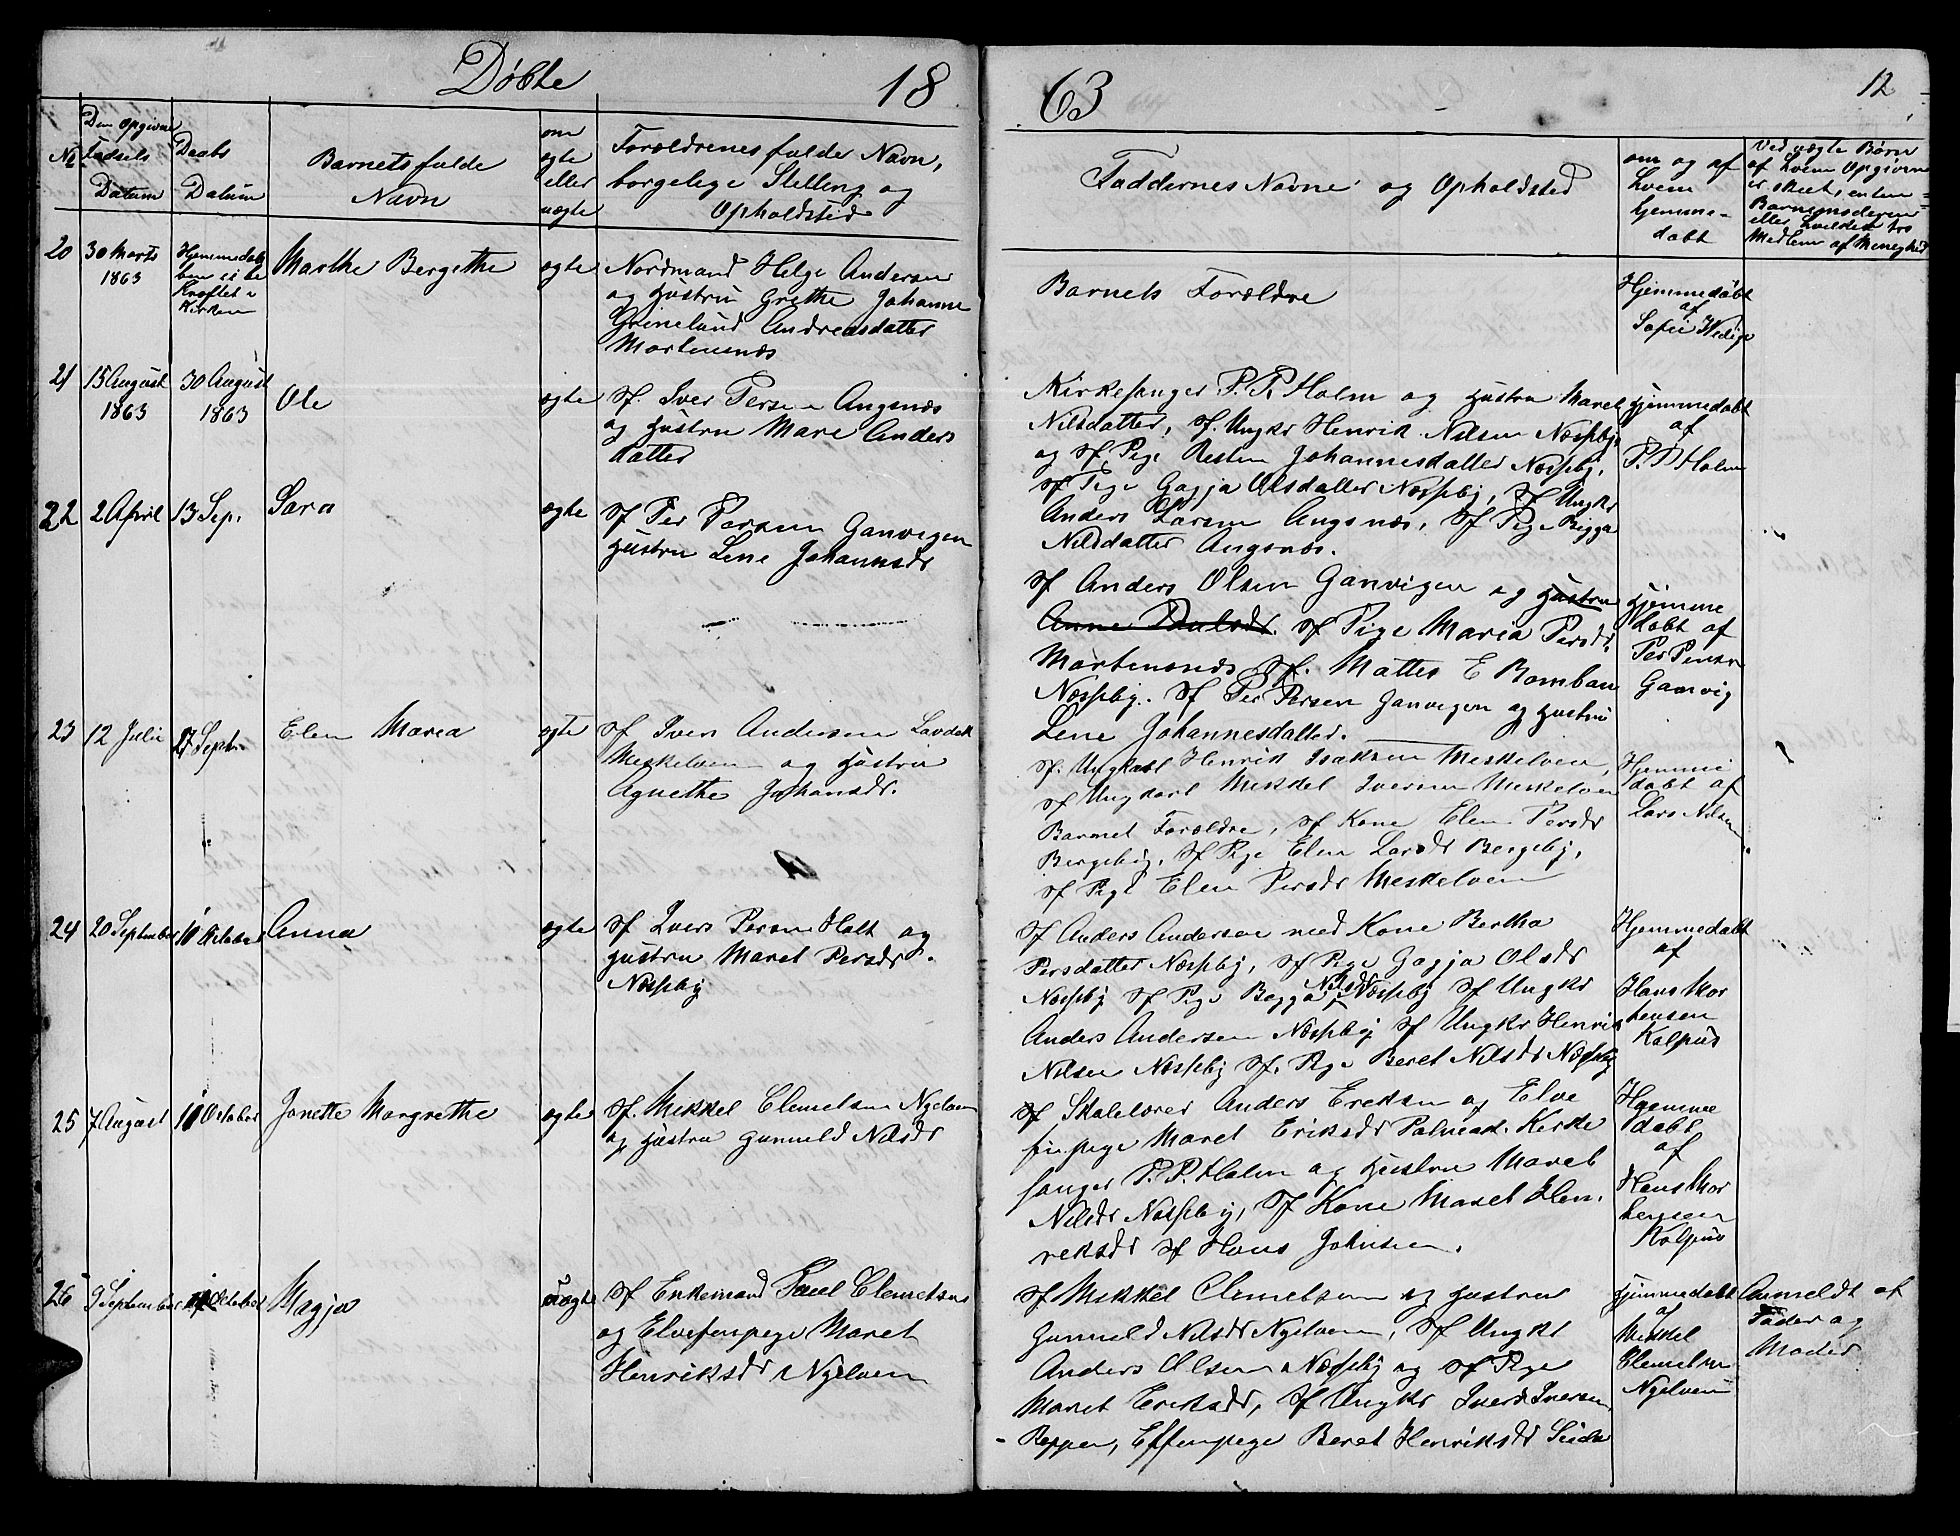 Døbte 18
63
12
No
Den opgivne
Fødsels
Datum
Daabs
Datum
Barnets fulde
Navn
om
ægte
eller
uægte
Forældrenes fulde Navn,
borgelige Stelling og
Opholdsted
Faddernes Navne og Opholdsted
om og af
hvem
hjemme-
døbt
Ved uægte Børn
af hvem Opgivne
er skeet, enten
Barnemoderen
eller hvilden tro
Medlem af Menighed
20
30 Marts
1863
Hjemmedaab
ben ei be
kræftet i
Kirken
Marthe Bergethe
ægte
Nordmand Helge Andersen
og Hustru Grethe Johanne
Grinelund Andreasdatter
Mortensnæs
Barnets Forældre
Hjemmedøbt
af
Sofie Wedige
21
15 August
1863
30 August
1863
Ole
ægte
Sf. Iver Persen Angsnæs
og Hustru Mare Anders
datter
Kirkesanger P. P. Holm og Hustru Maret
Nilsdatter, Sf. Ungkr Henrik Nilsen Næsseby,
og Sf. Pige Resten Johannesdatter Næsseby,
Sf Pige Gagja Olsdatter Næsseby, Sf Ungkr
Anders Larsen Angsnæs, Sf Pige Bigga
Nilsdatter Angsnæs.
Hjemmedøbt
af
P. P Holm
22
2 April
13 Sep.
Sara
ægte
Sf Per Persen Ganvigen
Hustru Lene Johannsdr
Sf Anders Olsen Ganvigen og Hustru
Anne Paulsdr. Sf Pige Maria Persdr,
Mortensnæs Sf. Mattes E Bomban
Næsseby. Sf Per Persen Ganvigen og Hustru
Lene Johannesdatter.
Hjemme
døbt af
Per Persen
Ganvig
23
12 Juli
27 Septr
Elen Maria
ægte
Sf Iver Andersen Lavdek
Meskelven og Hustru
Agnethe Johansdr.
Sf. Ungkarl Henrik Isaksen Meskelven,
Sf Ungkarl Mikkel Iversen Meskelven
Barnet Forældre, Sf Kone Elen Persdr
Bergeby, Sf Pige Elen Larsdr Bergeby,
Sf Pige Elen Persdr Meskelven
Hjemme
døbt af
Lars Nilsen
24
20 September
11 October
Anna
ægte
Sf Ivers Persen Halt og
Hustru Maret Persdr.
Næsseby
Sf Anders Andersen med Kone Bertha
Persdatter Næsseby, Sf Pige Gagja Olsdr
Næsseby Sf Pige Bagga Nilsdr Næsseby Sf Ungkr
Anders Andersen Næsseby Sf Ungkr Henrik
Nilsen Næsseby Sf. Pige Beret Nilsdr Næsseby
Hjemmedøbt
af
Hans Mor
tensen
Kalpus
25
7 August
11 October
Janette Margrethe
ægte
Sf. Mikkel Clemetsen Nyelven
og Hustru Gunneld Nilsdr
Sf Skolelærer Anders Ereksen og Elve
finpige Maret Eriksdr Polmak. Kirke
sanger P. P. Holm og Hustru Maret
Nilsdr Næsseby, Sf Kone Maret Hen,
reksdr Sf Hans Johnsen.
Hjemme
døbt
af
Hans Mor
tensen
Kalpus
26
9 September
11 October
Magja
uægte
Sf Enkemand Paul Clemetsen
og Elvefinpige Maret
Henriksdr Nyelven
Sf Mikkel Clemetsen og Hustru
Gunneld Nilsdr Nyelven, Sf Ungkr
Anders Olsen Næsseby og Sf Pige
Maret Eriksdr, Sf Ungkr Iver Iversen
Reppen, Effenpige Beret Henriksdr Seida
Hjemmedøbt
af
Mikkel
Clemetsen
Nyelven
Anmeldt af
Fader og
Moder